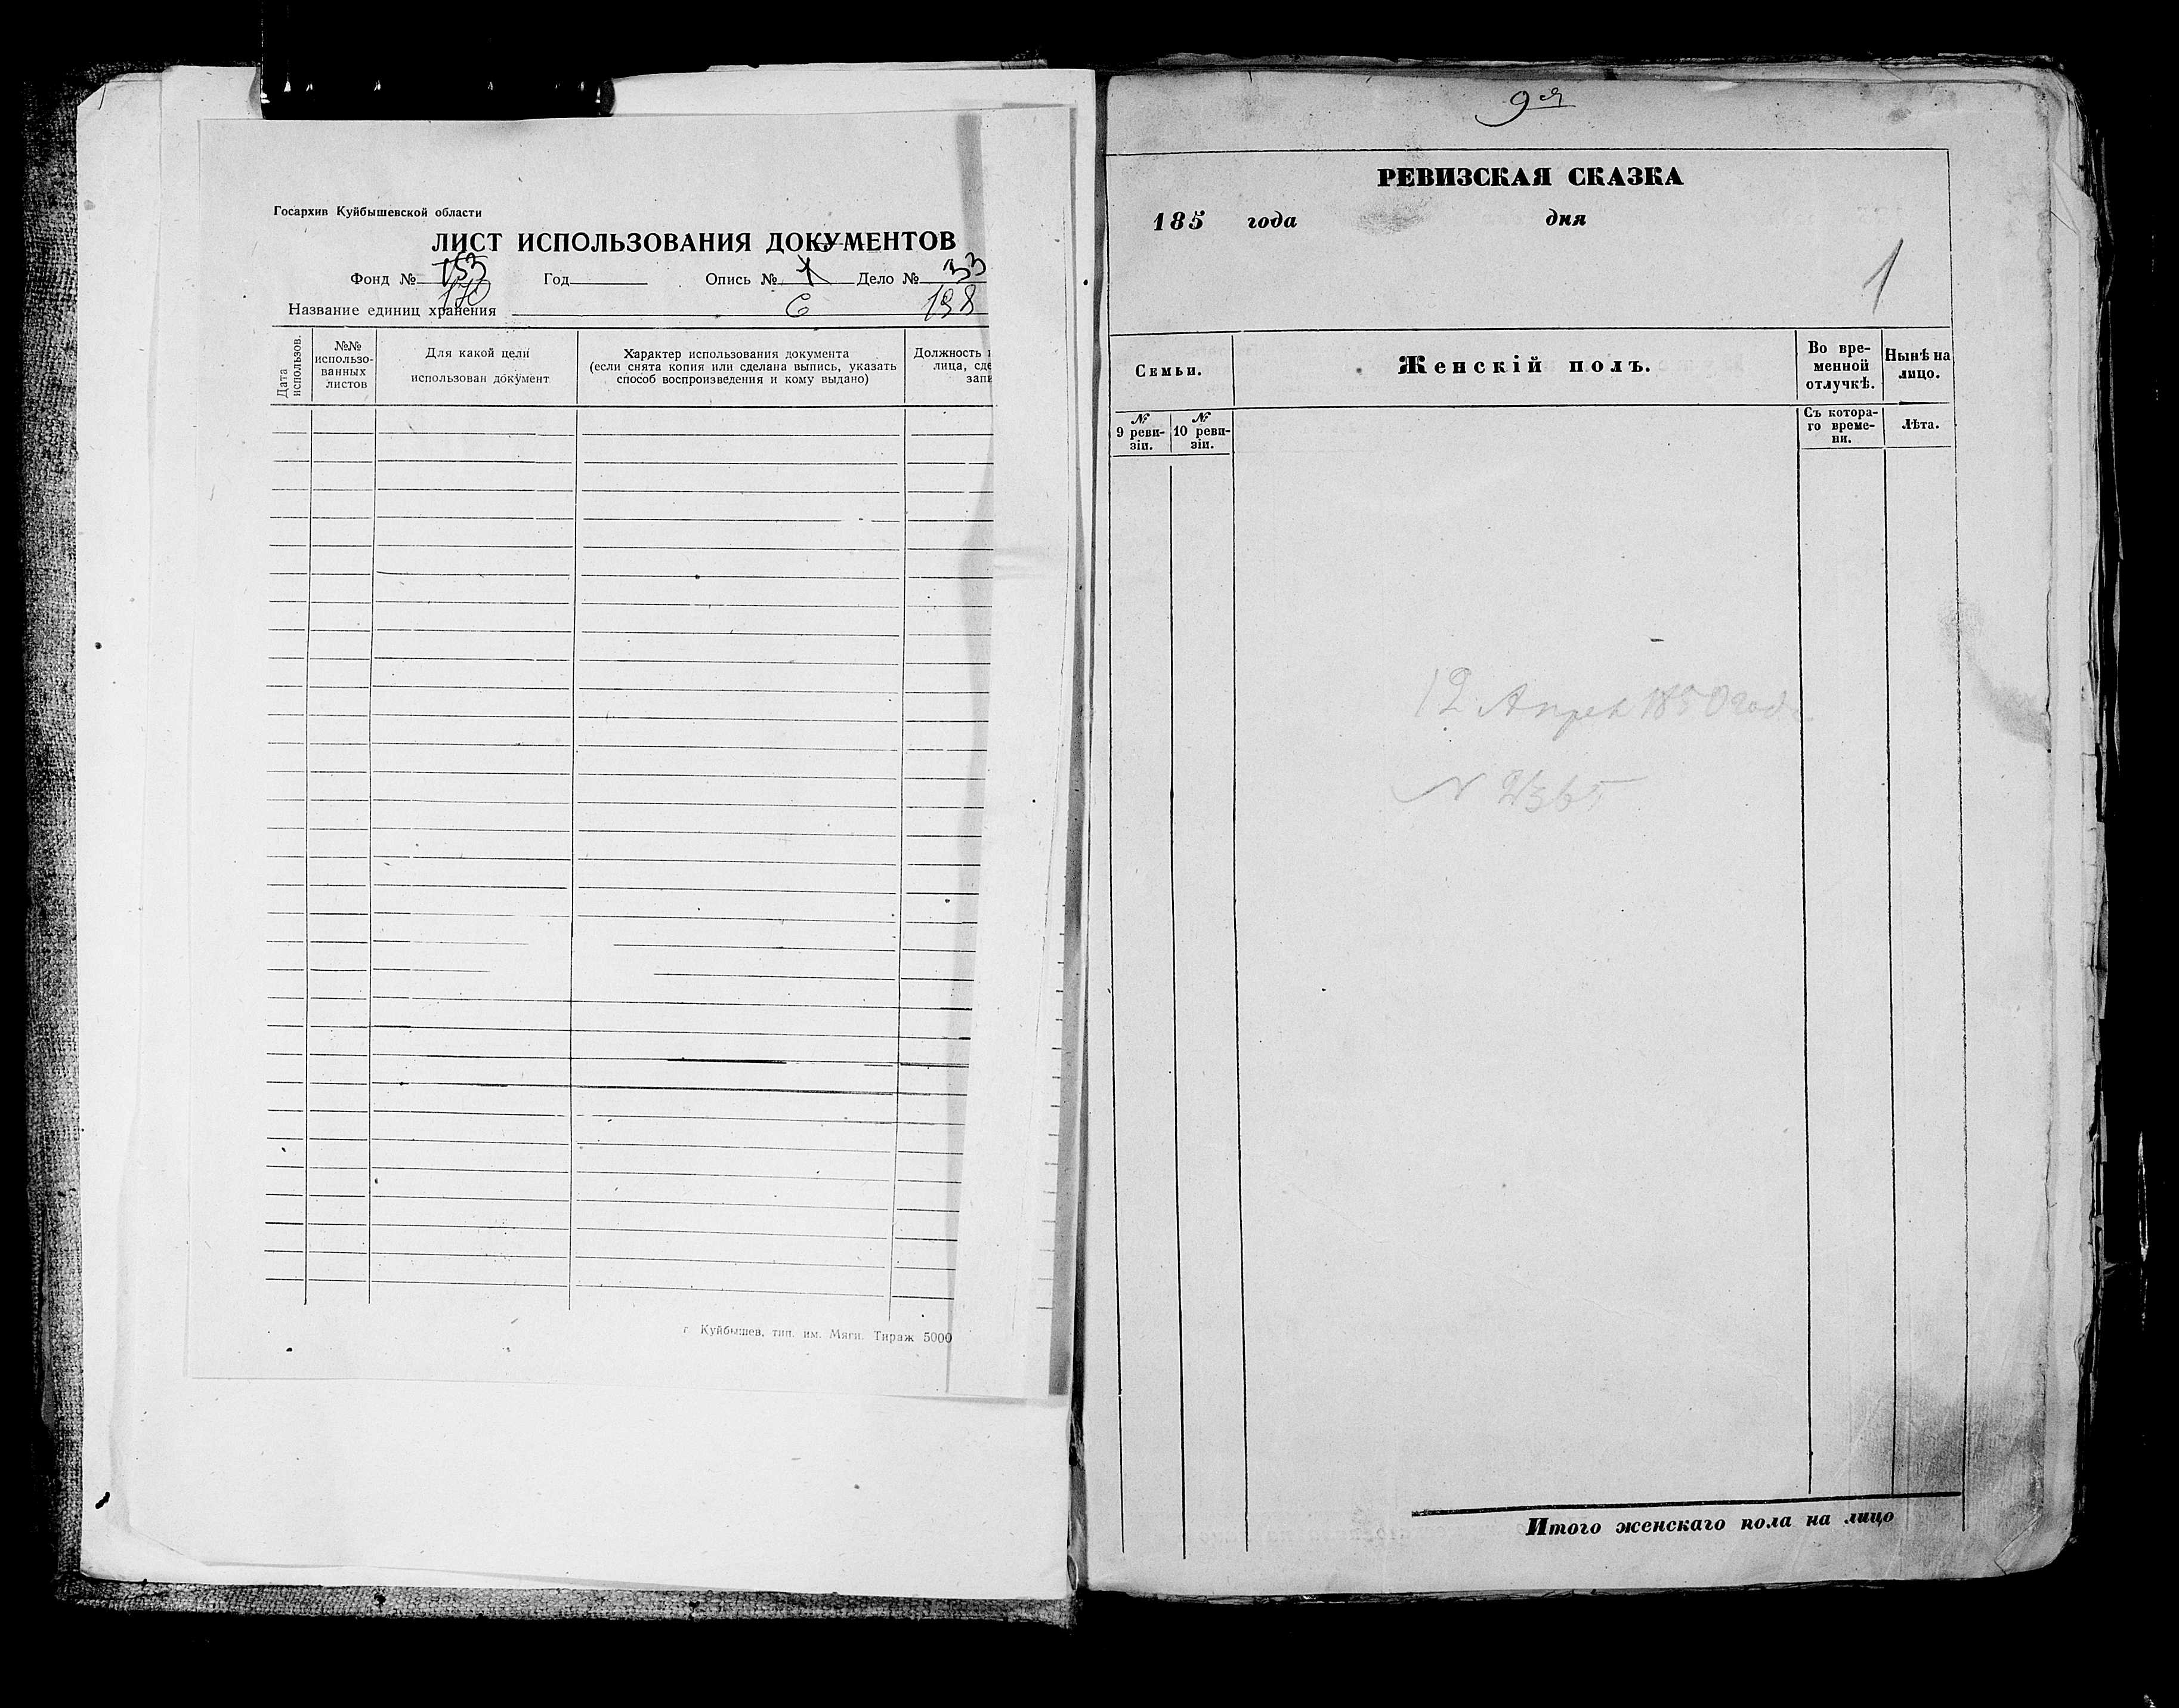 Госархив Куйбышевской области
ЛИСТ ИСПОЛЬЗОВАНИЯ ДОКУМЕНТОВ
Фонд № 153 Год Опись № 1 Дело № 33
170 6 198
Название единиц хранения
Дата использов.
№№ использо-ванных листов
Для какой цели использован документ
Характер использования документа
(если снята копия или сделана выпись, указать
способ воспроизведения и кому выдано)
Должность
лица, сде
запи
г. Куйбышев, тип. им. Мяги. Тираж 5000
9я
РЕВИЗСКАЯ СКАЗКА
185 года дня
1
Семьи.
Женскій полъ.
Во вре-
менной
отлучкѣ.
Нынѣ на
лицо.
№
9 реви-
зіи.
№
10 реви-
зіи.
Съ котора-
го време-
ни.
Лѣта.
12 Апрел 1850 год
N
Итого женскаго пола на лицо